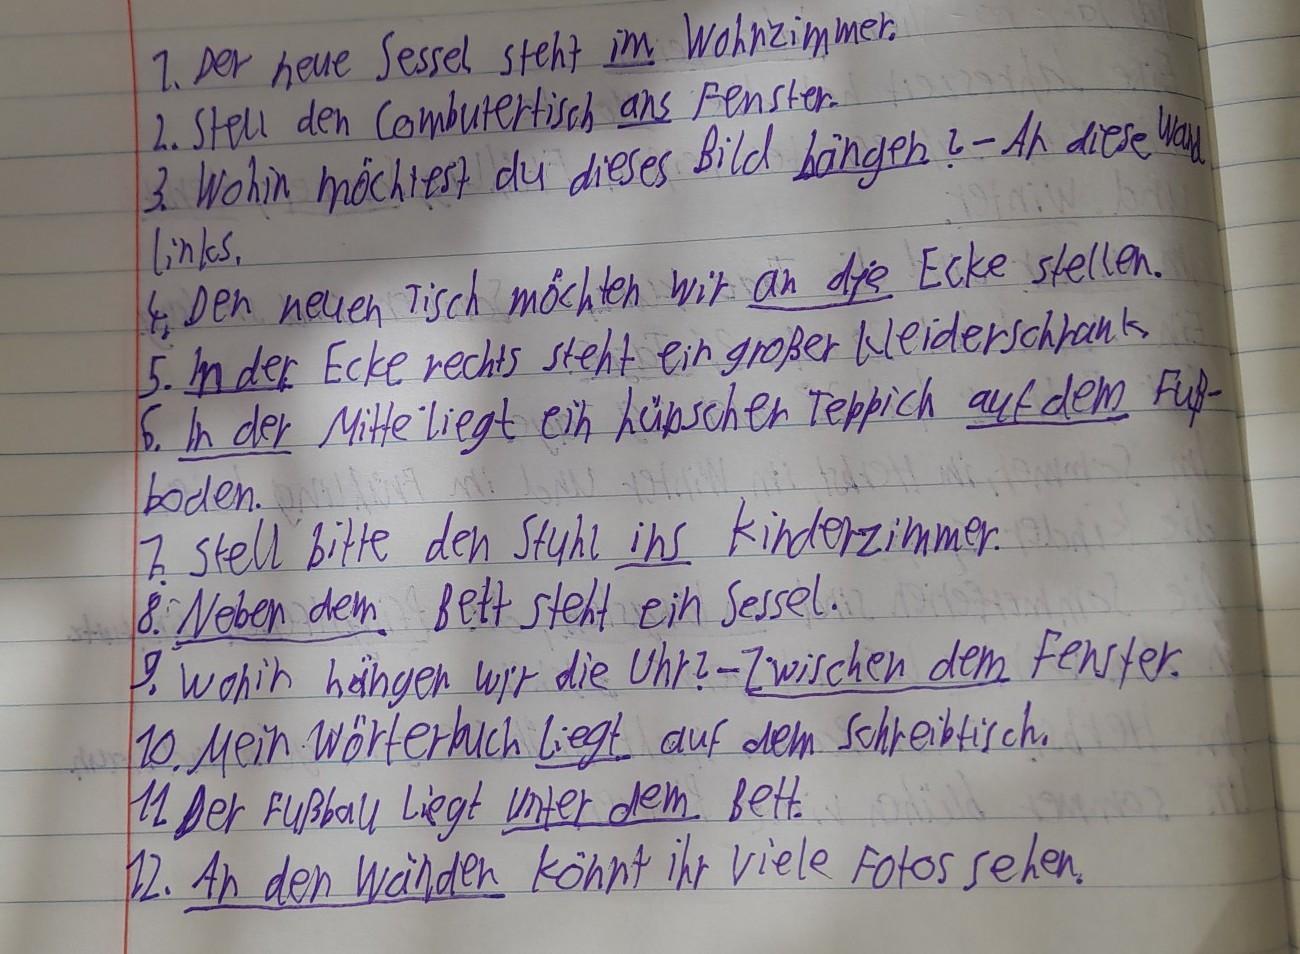 1. Der neue Sessel steht im Wohnzimmer.
2. Stell den Computertisch ans Fenster.
3. Wohin möchtest du dieses Bild hängen? - An diese Wand
links.
4. Den neuen Tisch möchten wir an die Ecke stellen.
5. In der Ecke rechts steht ein großer Kleiderschrank.
6. In der Mitte liegt ein hüpscher Teppich auf dem Fuß-
boden.
7. Stell bitte den Stuhl ins Kinderzimmer.
8. Neben dem Bett steht ein Sessel.
9. Wohin hängen wir die Uhr? - Zwischen dem Fenster.
10. Mein Wörterbuch liegt auf dem Schreibtisch.
11. Der Fußball liegt unter dem Bett.
12. An den Wänden könnt ihr viele Fotos sehen.